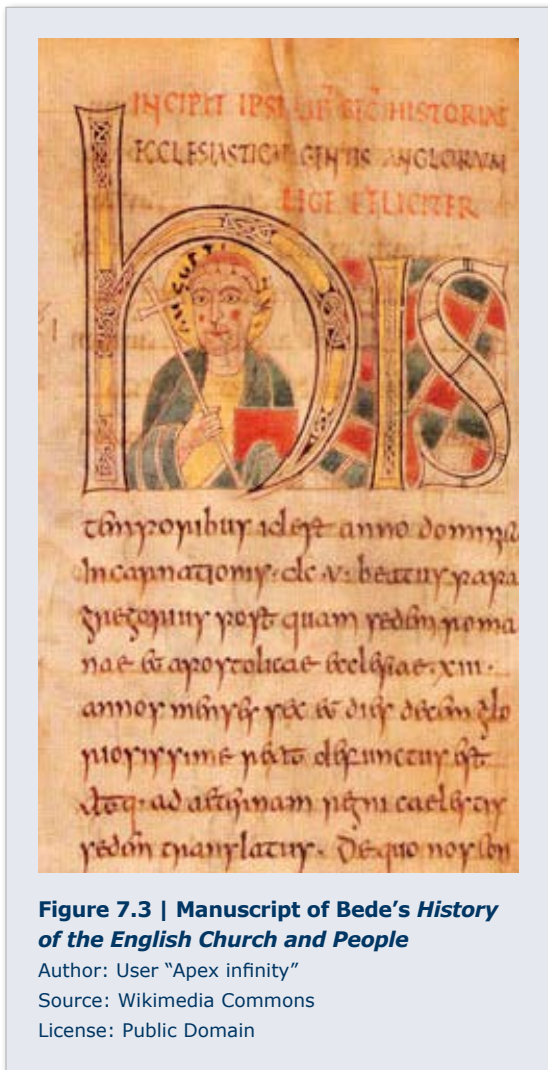 INCIPIT HISTORIAE
ECCLESIASTICAE GENTIS ANGLORUM
LIGE FELICITER
hIS
AUGUSTI
temporibus idest anno domini
Incarnationis · dc · v · beatus papa
gregorius post quam sedem roma
nae et apostolicae ecclesiae · xiii ·
annos menses sex et dies decem glo
riosissime rexit defunctus est
atq · ad aeternam regni caelestis
sedem translatus · De quo nos con
Figure 7.3 | Manuscript of Bede's History
of the English Church and People
Author: User “Apex infinity”
Source: Wikimedia Commons
License: Public Domain